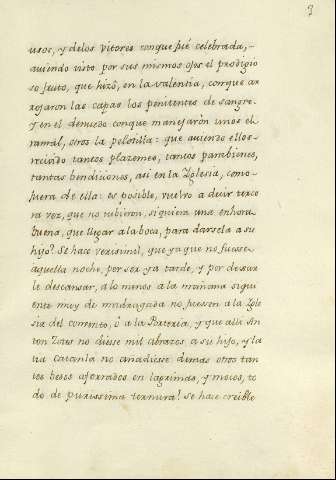 usos, y delos vitores conque fué celebrada,
auiendo visto por sus mismos ojos el prodigio
so fruto, que hizò, en la valentia, conque ar
rojaron las capas los penitentes de sangre.
Y en el denuedo conque manejaròn unos el
ramàl, otros la pelotilla: que auiendo ellos
receuido tantos plazemes, tantos parabienes,
tantas bendiciones, asi en la Yglesia, como
fuera de ella: es posible, vuelvo a decir terce
ra vez, que no tubieron, siquiera una enhora
buena, que llegar ala boca, para darsela a su
hijo? Se hace verisimil, que ya que no fuesse
aquella noche, por ser ya tarde, y por dexar
le descansar, à lo menos a la mañana sigui
ente muy de madrugada no fuessen a la Ygle
sia del convento, ò a la Porteria, y que alli An
ton Zotes no diese mil abrazos a su hijo, y la
tia Catanla no añadiesse demas otros tan
tos besos aforrados en lagrimas, y mocos, to
do de purissima ternura? Se hace creible